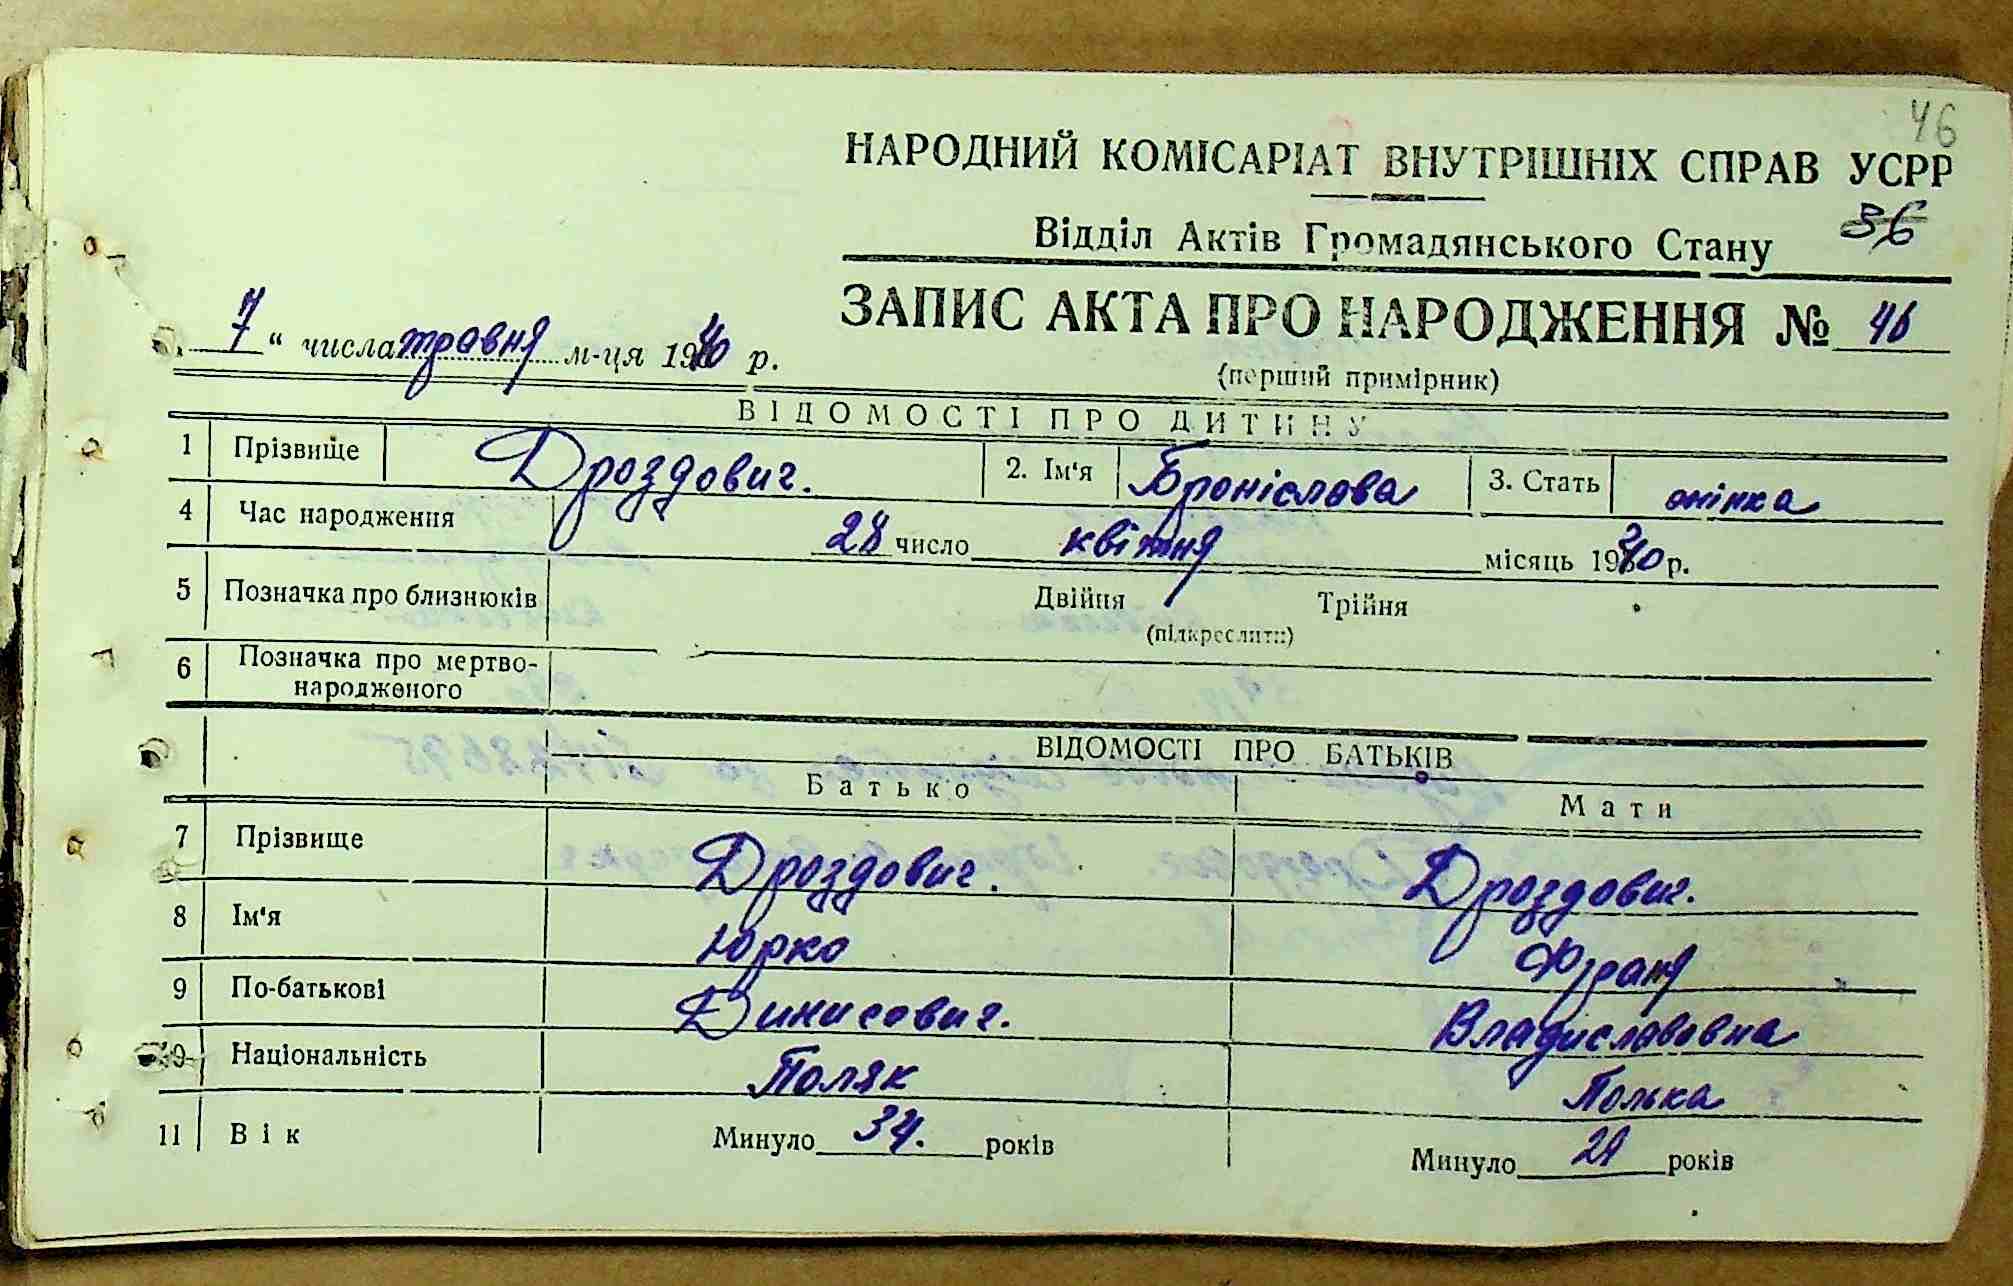 46
НАРОДНИЙ КОМІСАРІАТ ВНУТРІШНІХ СПРАВ УСРР
Відділ Актів Громадянського Стану 36
ЗАПИС АКТА ПРО НАРОДЖЕННЯ № 46
7 “ числа травня м-ця 1940 р.
(перший примірник)
ВІДОМОСТІ ПРО ДИТИНУ
1 Прізвище Дроздович. 2. Ім'я Броніслава 3. Стать жінка
4 Час народження 28 число квітня місяць 1940 р.
5 Позначка про близнюків Двійня Трійня
(підкреслити)
6 Позначка про мертво-
народженого
ВІДОМОСТІ ПРО БАТЬКІВ
Батько Мати
7 Прізвище Дроздович. Дроздович.
8 Ім'я Юрко
9 По-батькові Динисович. Владиславовна
10 Національність Поляк Полька
11 Вік Минуло 34. років Минуло років